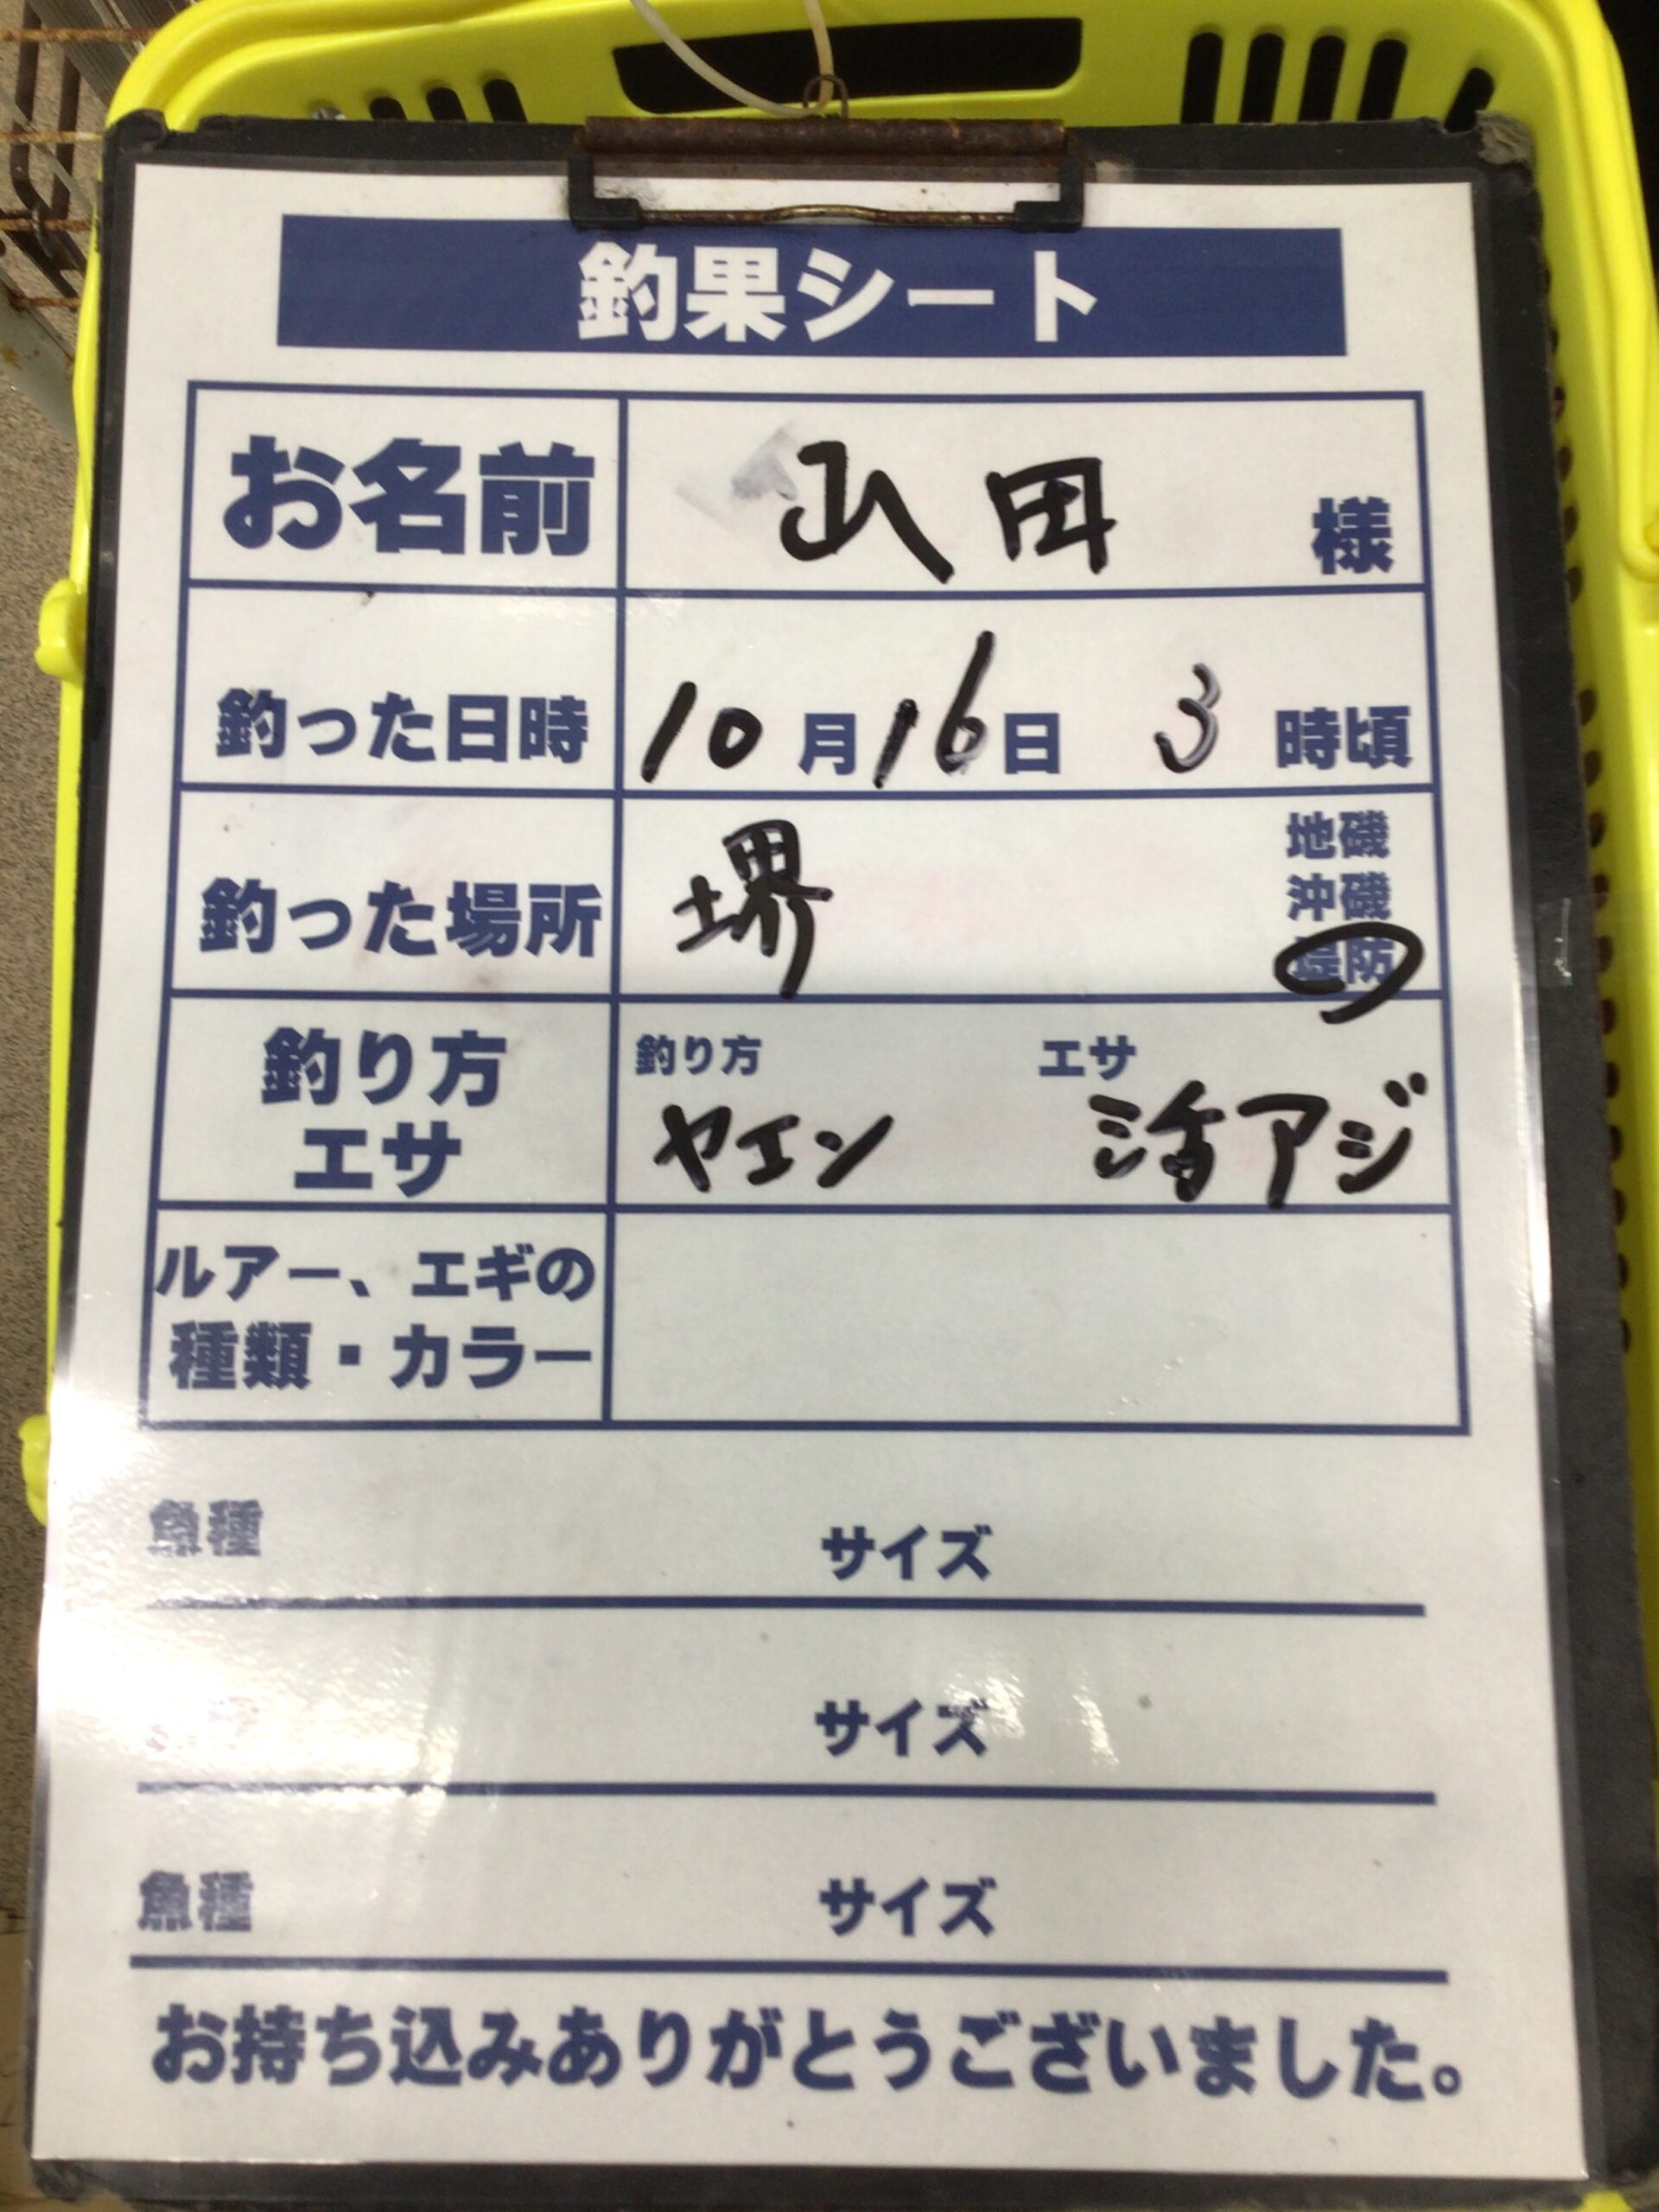 釣果シート
お名前 山田 様
釣った日時 10月16日 3時頃
釣った場所 堺 地磯
沖磯
堤防
釣り方 エサ
釣り方 エサ
ヤエン 活アジ
ルアー、エギの
種類・カラー
魚種 サイズ
サイズ
魚種 サイズ
お持ち込みありがとうございました。